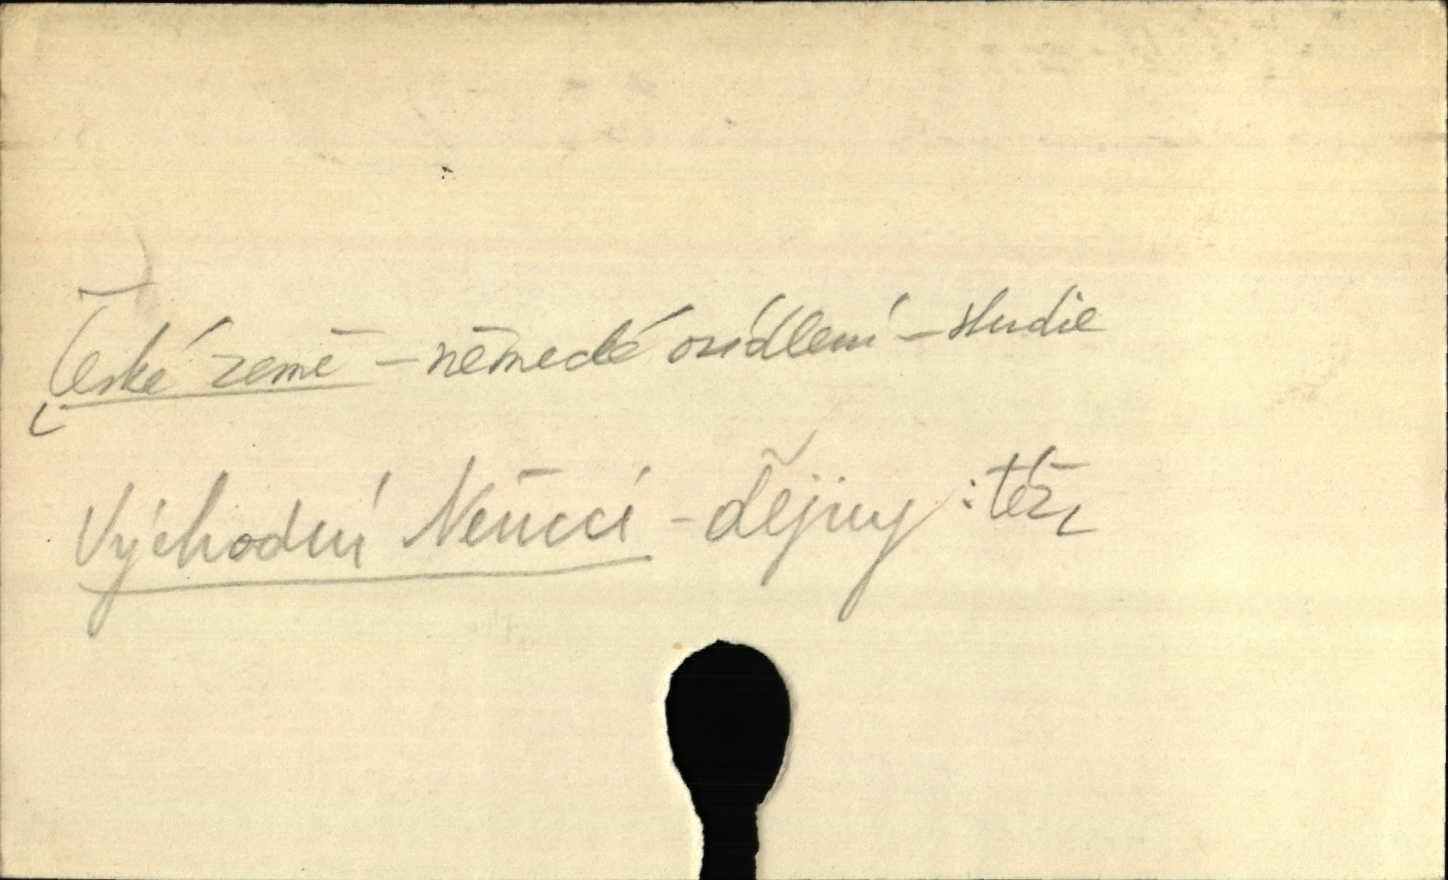 České země – německé osídlení – studie
Východní Němci – dějiny : též